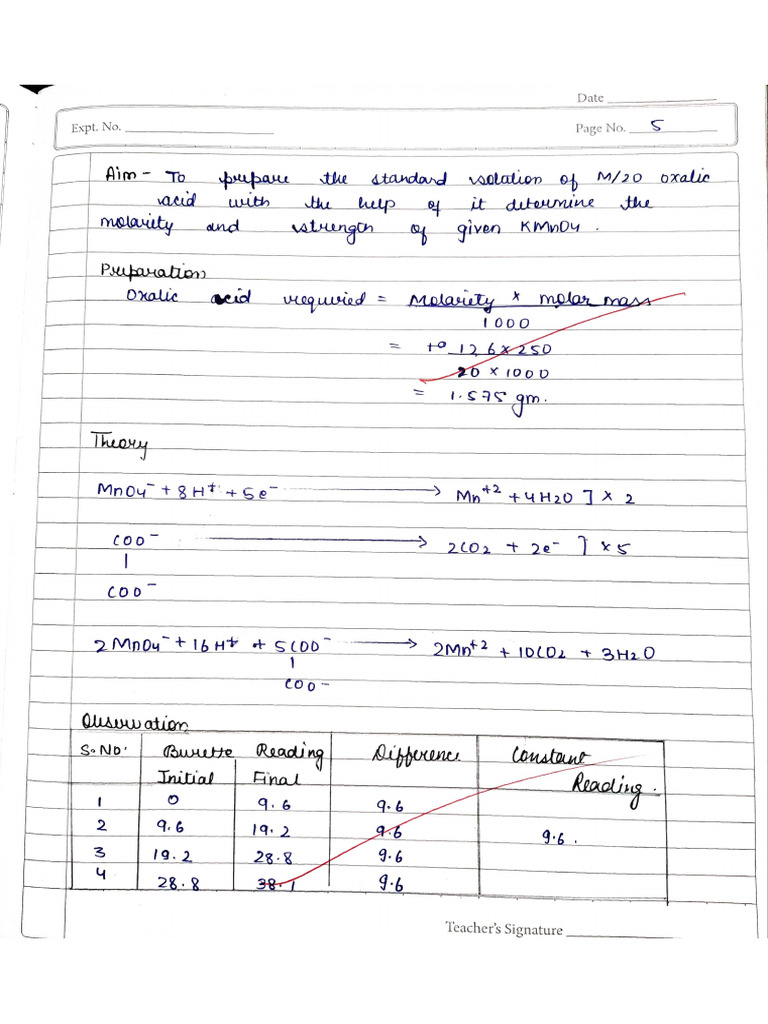 Date
Expt. No.
Page No. 5
Aim - To prepare the standard solution of M/20 oxalic
acid with the help of it determine the
molarity and strength of given KMnO4.
Preparation
Oxalic acid required = Molariety x molar mass
1000
= 126 x 250
20 x 1000
= 1.575 gm.
Theory
MnO4⁻ + 8H⁺ + 5e⁻ → Mn⁺² + 4H2O ] x 2
COO⁻ → 2CO2 + 2e⁻ ] x 5
|
COO⁻
2MnO4⁻ + 16H⁺ + 5COO⁻ → 2Mn⁺² + 10CO2 + 3H2O
|
COO⁻
Observation
S.No. Burette Reading Difference Constant
Initial Final Reading.
1 0 9.6 9.6
2 9.6 19.2 9.6 9.6.
3 19.2 28.8 9.6
4 28.8 38.1 9.6
Teacher's Signature